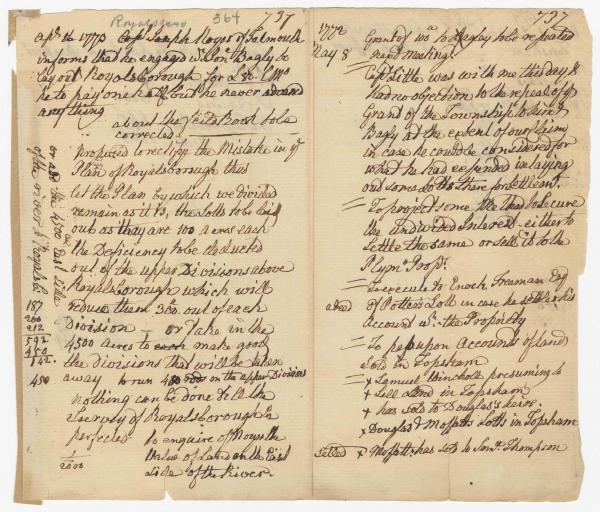 Royalsboro 364 737
Apl. 16 1773 Capt Joseph Noyes of Falmouth
informs that he engaged wt. Jona. Bagly to
lay out Royalsborough for £80. L Mo
he to pay one half but he never advanced
anything
about the Fields Book to be
corrected
proposed to rectify the Mistake in ye
Plan of Royalsborough thus
let the Plan by which we divided
remain as it is, the Lotts to be laid
out as they are 100 acres each
the Deficiency to be deducted
out of the upper Divisions above
Royalsborough which will
reduce them 380 out of each
Division — or take in the
4500 acres to each make good
the divisions that will be taken
away to run on the upper Divisions
nothing can be done till the
Survey of Royalsborough is
perfected to enquire of Noyes the
Value of Land on the East
Side of the River.
or add the 4500 East Side
of the river of Royalsbo
187
592
450
142
450
1/2000
737
1772
May 8
Grant of to Bagly to be repeated
next meeting.
Capt Little was with me this day &
had no objection to the repeal of ye
Grand of the Township to him &
Bagly at the expence of our Claim
in case he could be considered for
what he had expended in laying
out some Lotts there for settlemt.
= To project some Method to secure
the undivided Interest either to
Settle the same or sell it to the
Plymo. Propr.
= To execute to Enoch Freeman Esq
a deed of Potters Lott in case he settles his
Account wt. the Propriety
= To be upon accounts of Land
Sold in Topsham
x Samuel Winchell presuming to
x Sell Land in Topsham
+ has sold to Douglas's heirs.
x Douglas & Moffatts Lotts in Topsham
Settled x Moffatt has sold to Saml. Thompson